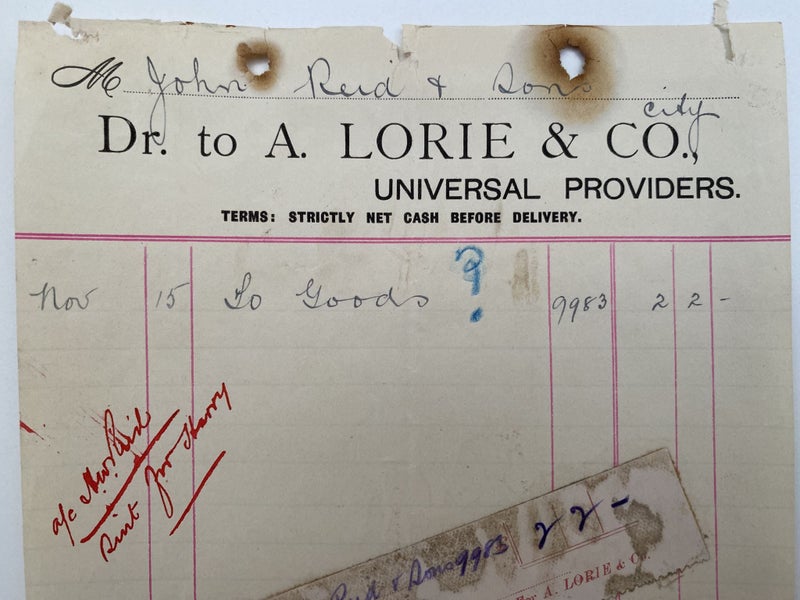 M John Reid & Sons
city
Dr. to A. LORIE & CO.,
UNIVERSAL PROVIDERS.
TERMS: STRICTLY NET CASH BEFORE DELIVERY.
Nov 15 To Goods ? 9983 2 2 -
a/c Reid
Harry
Reid & Sons 9983 2 2 -
For A. LORIE & Co.